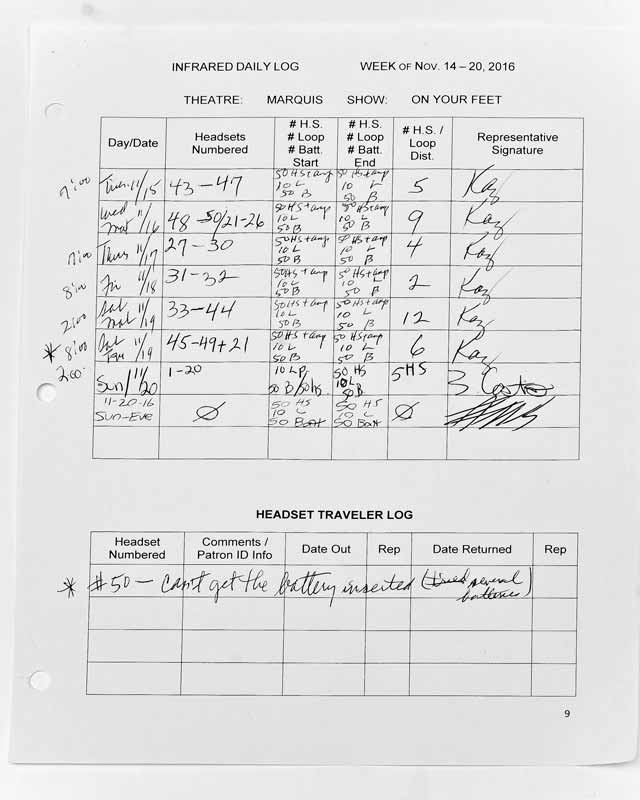 INFRARED DAILY LOG WEEK OF NOV. 14 – 20, 2016
THEATRE: MARQUIS SHOW: ON YOUR FEET
Day/Date Headsets Numbered # H.S. # Loop # Batt. Start # H.S. # Loop # Batt. End # H.S. / Loop Dist. Representative Signature
7:00 Tues. 11/15 43-47 50 HS + amp 10 L 50 B 50 HS + amp 10 L 50 B 5 Kaz
Wed Mat 11/16 48-50/21-26 50 HS + amp 10 L 50 B 50 HS + amp 10 L 50 B 9 Kaz
7:00 Thurs 11/17 27-30 50 HS + amp 10 L 50 B 50 HS + amp 10 L 50 B 4 Kaz
8:00 Fri 11/18 31-32 50 HS + amp 10 L 50 B 50 HS + amp 10 L 50 B 2 Kaz
2:00 Sat Mat 11/19 33-44 50 HS + amp 10 L 50 B 50 HS + amp 10 L 50 B 12 Kaz
* 8:00 Sat 11/19 45-49+21 50 HS + amp 10 L 50 B 50 HS + amp 10 L 50 B 6 Kaz
Sun 11/20 1-20 10 LP 50 B/50 HS. 50 HS 10 L 50 B 5 HS
11-20-16 Sun-Eve Ø 50 HS 10 L 50 Batt 50 HS 10 L 50 Batt Ø
HEADSET TRAVELER LOG
Headset Numbered Comments / Patron ID Info Date Out Rep Date Returned Rep
* #50 - Can't get the battery inserted (tried several batteries)
9